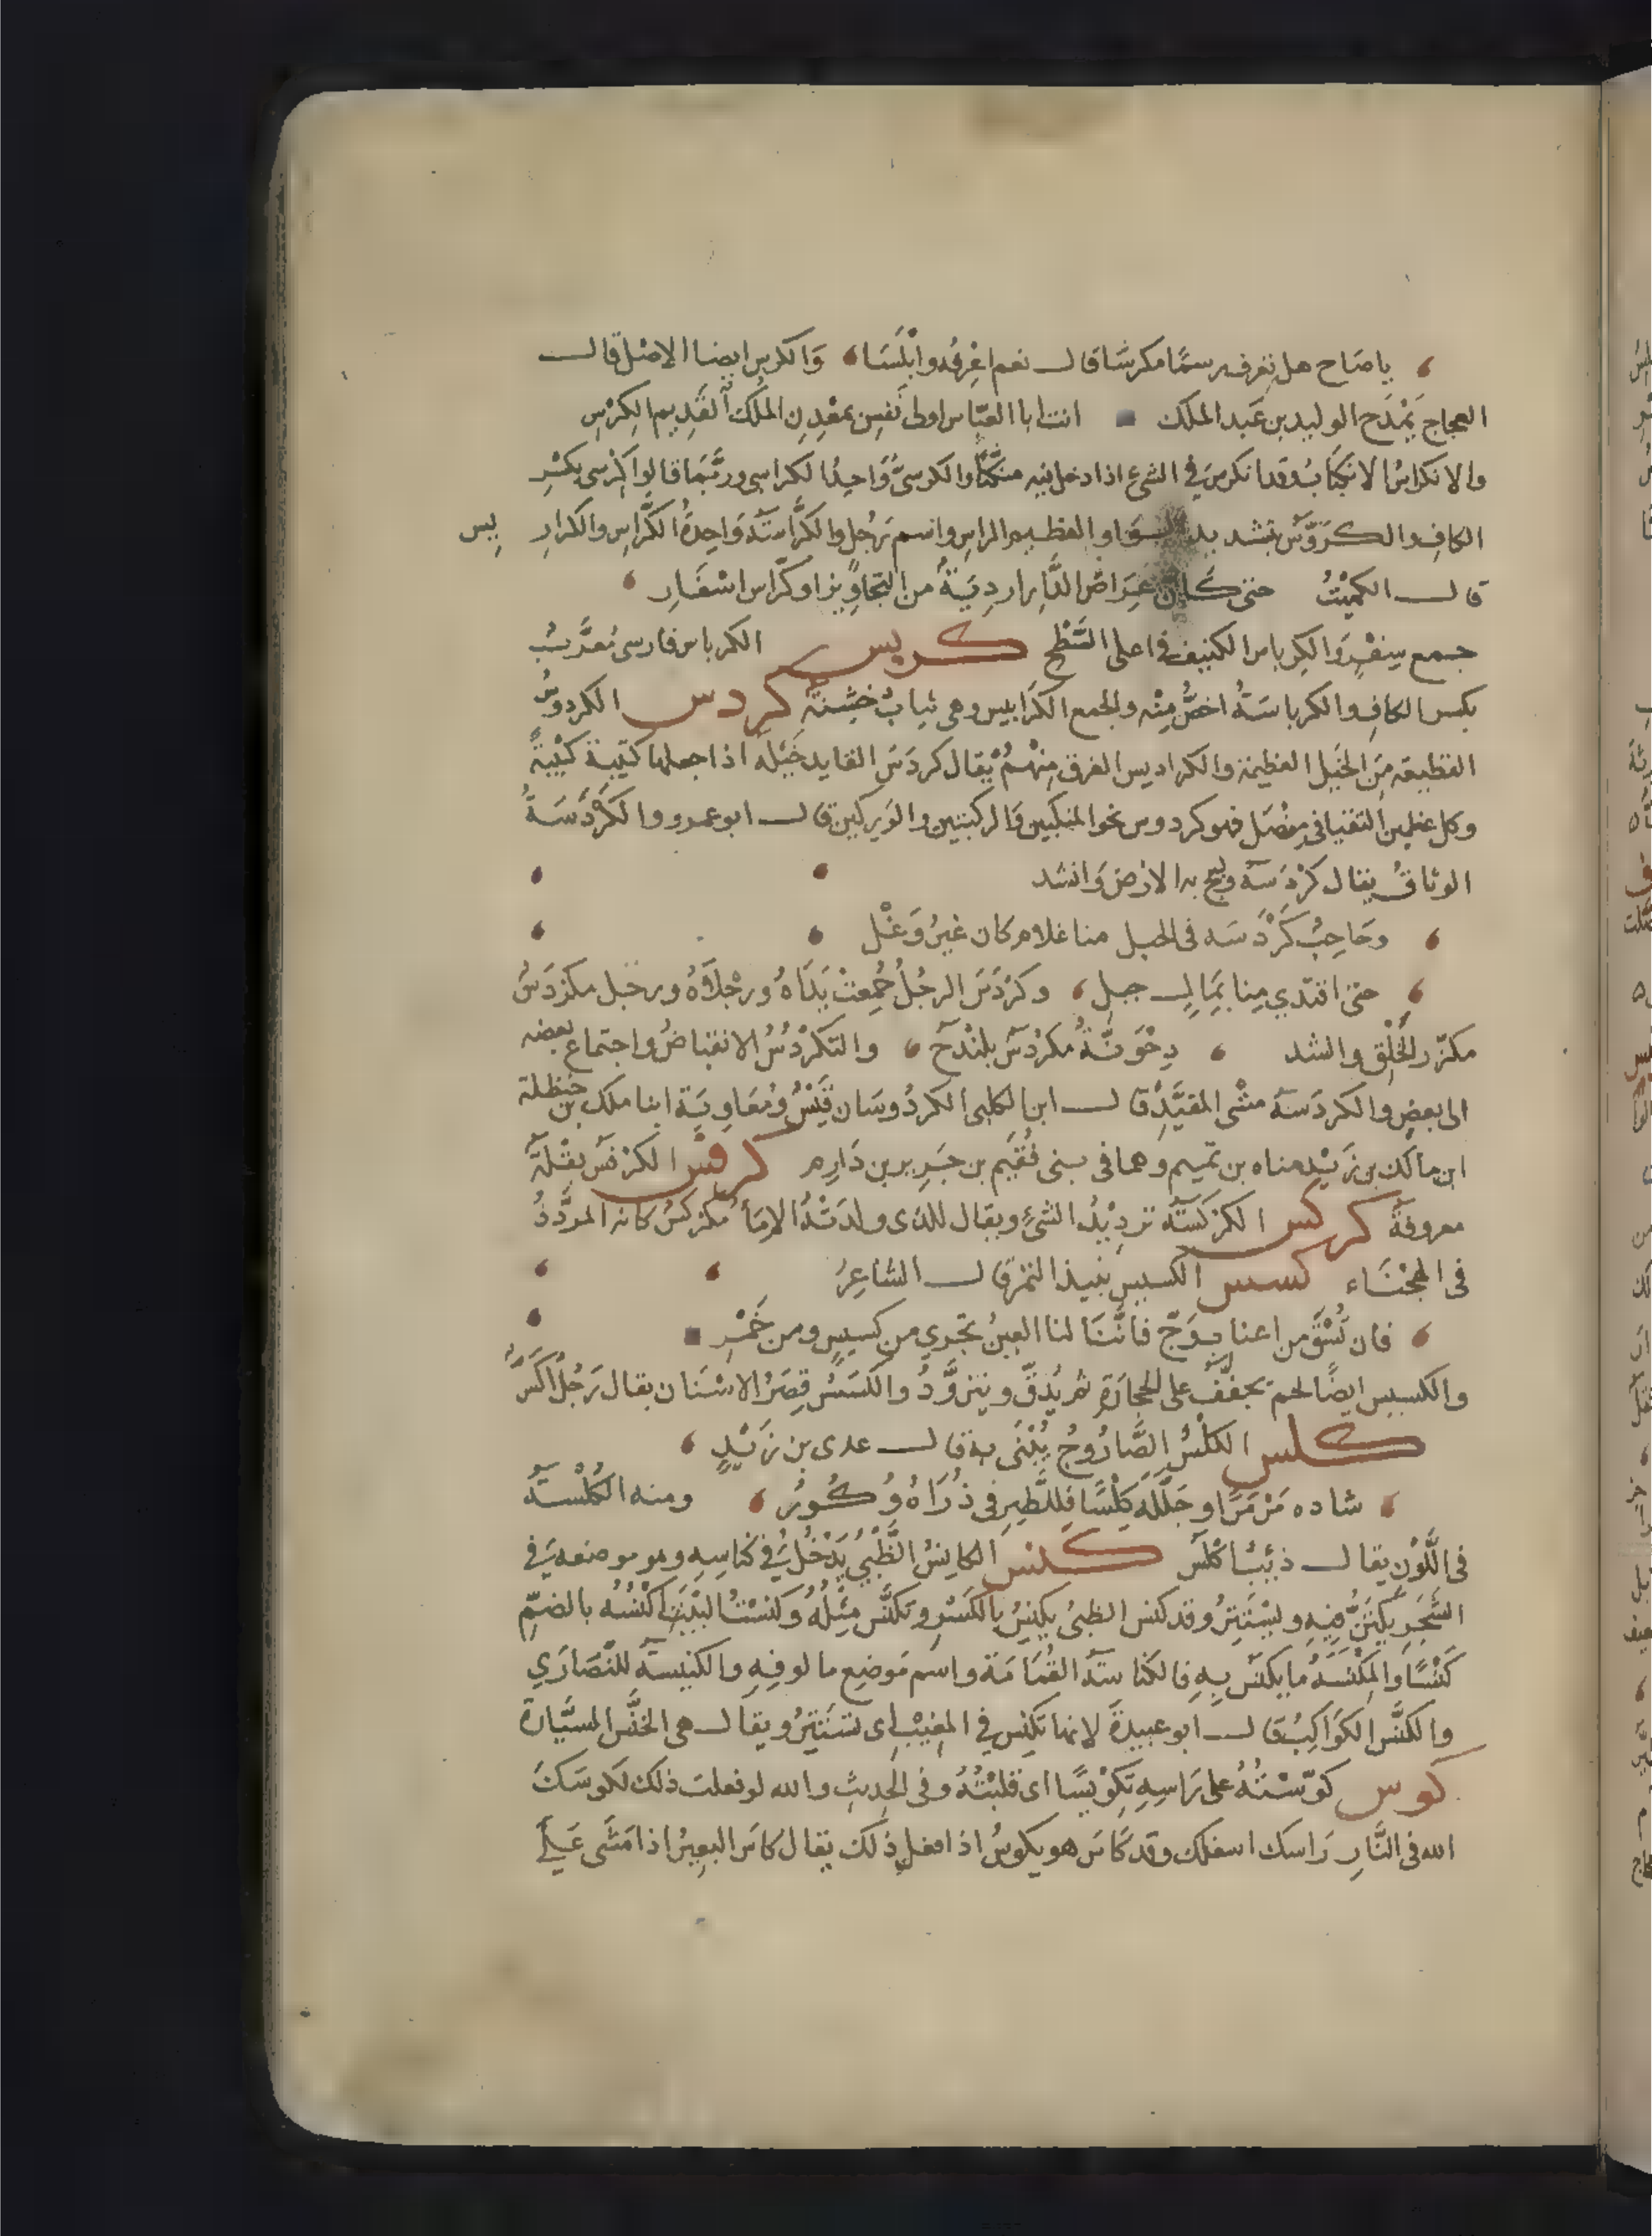 يا صَاح هل تعرف رسمًا مكرسًا قال نعم اعْرِفُه وابْلَسَا وَالكرس ايضا الاصْل قال
العجاج يَمْدَح الوليد بن عَبد الملك انت ابا العبّاس اولى نَفسٍ بمعْدِنِ المُلْك القَدِيم الكِرْسِ
والانكراسُ الانكبَابُ وقد انكرسَ في الشيء اذا دخل فيه منكبًّا والكرسىُّ وَاحِدُ الكراسى وربَّمَا قالوا كِرْسى بكسْرِ
الكافِ والكَرَوَّسُ بتشديد الواو العظيم الراس واسم رَجُل والكرَّاسَة وَاحِدةُ الكرَّاس والكرارِيس
قال الكميْتُ حتى كَانّ عِرَاصَ الدَّار ارْدِيَةٌ من التجاوِيز او كرّاس اسْفَارِ
جمع سِفْرٍ وَالكِرياس الكنيف في اعلى السَّطْح كربس الكرباس فارسى مُعَرَّبٌ
بكسر الكافِ والكرباسَةُ اخصُّ مِنْه والجمع الكَرَابيس وهى ثيابٌ خشِنَةٌ كردس الكردوسُ
القطيعة مِنَ الخَيل العظيمة والكراديس الفرق مِنْهُمْ يُقال كردَسَ القايد خَيْلَه اذا جعلها كتيبة كتيْبَةً
وكل عظمين التقيا فى مفْصَل فهو كردوس نحو المنكبين وَالركبتين والوَرِكين قال ابو عمرو والكَرْدَسَةُ
الوثاقُ يقال كرْدَسَهُ ولبج به الارْضَ وَانشد
وحَاجِبٌ كَرْدَسَه فى الحبل منا غلام كان غيرَ وَغْل
حتى افتدي مِنا بمَالٍ جبل وكُرْدَسَ الرجُلُ جُمِعتْ يَدَاهُ ورِجْلاهُ ورجل مكرْدَسٌ
مكرّر الخَلْقِ وانشد دِحْوَنَّةٌ مُكرْدَسٌ بلنْدَحُ والتكَرْدُسُ الانقباضُ واجتماع بعضه
الى بعض والكردَسَة مشْى المقيَّدِ قال ابن الكلبى الكردُوسَان قَيْسٌ ومُعَاويَة ابنا ملك بن حنظلة
ابن مالك بن زَيْدِ مناه بن تميم وهما فى بنى فُقَيْم بن جَرِير بن دَارِم كرفس الكرَفسُ بقْلَةٌ
معروفةٌ كركس الكَرْكَسَةُ ترديْدُ الشيءِ ويقال للذى ولدَتْهُ الامَاء مكرْكسٌ كانه المردَّدُ
فى الهُجْنَاء كسس الكسيس نبيذ التمْر قال الشاعِرُ
فان تُسْقَ من اعناب وَجّ فانَّنَا لنا العينُ تجْرِي من كسيسٍ ومن خَمْرِ
والكسيس ايضًا لحم يجفَّفُ على الحجَارَةِ ثم يُدَقّ ويتزوَّدُ والكَسَسُ قِصَرُ الاسْنَان يقال رَجُلٌ اكَسُّ
كلس الكِلْسُ الصَّارُوجُ يُبْنَى به قال عدى بن زَيْدٍ
شاده مَرْمَرًا وجَلَّلَه كِلْسًا فللطَّيرِ فى ذُرَاهُ وُكُورُ ومنه الكُلْسَةُ
فى اللَّوْن يقال ذئبٌ اكْلَسُ كنس الكانِسُ الظَّبْيُ يَدْخُلُ في كناسِهِ وهو موضعه في
الشَّجَرِ يكْتَنُّ فِيهِ ويسْتَتِرُ وقد كنس الظبىُ يكنِسُ بالكَسْرِ وتكنَّسَ مِثْلُهُ وكنسْتُ البَيْتَ اكْنُسُهُ بالضمِّ
كَنْسًا وَالمِكْنَسَةُ مايكنَسُ بِهِ فالكُنَاسَةُ القُمَامَة واسم مَوضِع مالوفِهِ والكنيسَةُ للنَّصَارَي
والكنَّسُ الكَوَاكِبُ قال ابو عبيدةَ لانها تكنِس في المغِيْب اى تسْتَتِرُ ويقال هى الخنَّس السيَّارة
كوس كوّسْتُهُ على رَاسِهِ تكْويْسًا اى قلبْتُهُ وفى الحديثِ والله لو فعلت ذلك لكوسَكَ
الله فى النَّارِ رَاسك اسفلك وقد كَاسَ هو يكوسُ اذا فعل ذلك يقال كاسَ البعِيْرُ اذا مَشَى عَلَى